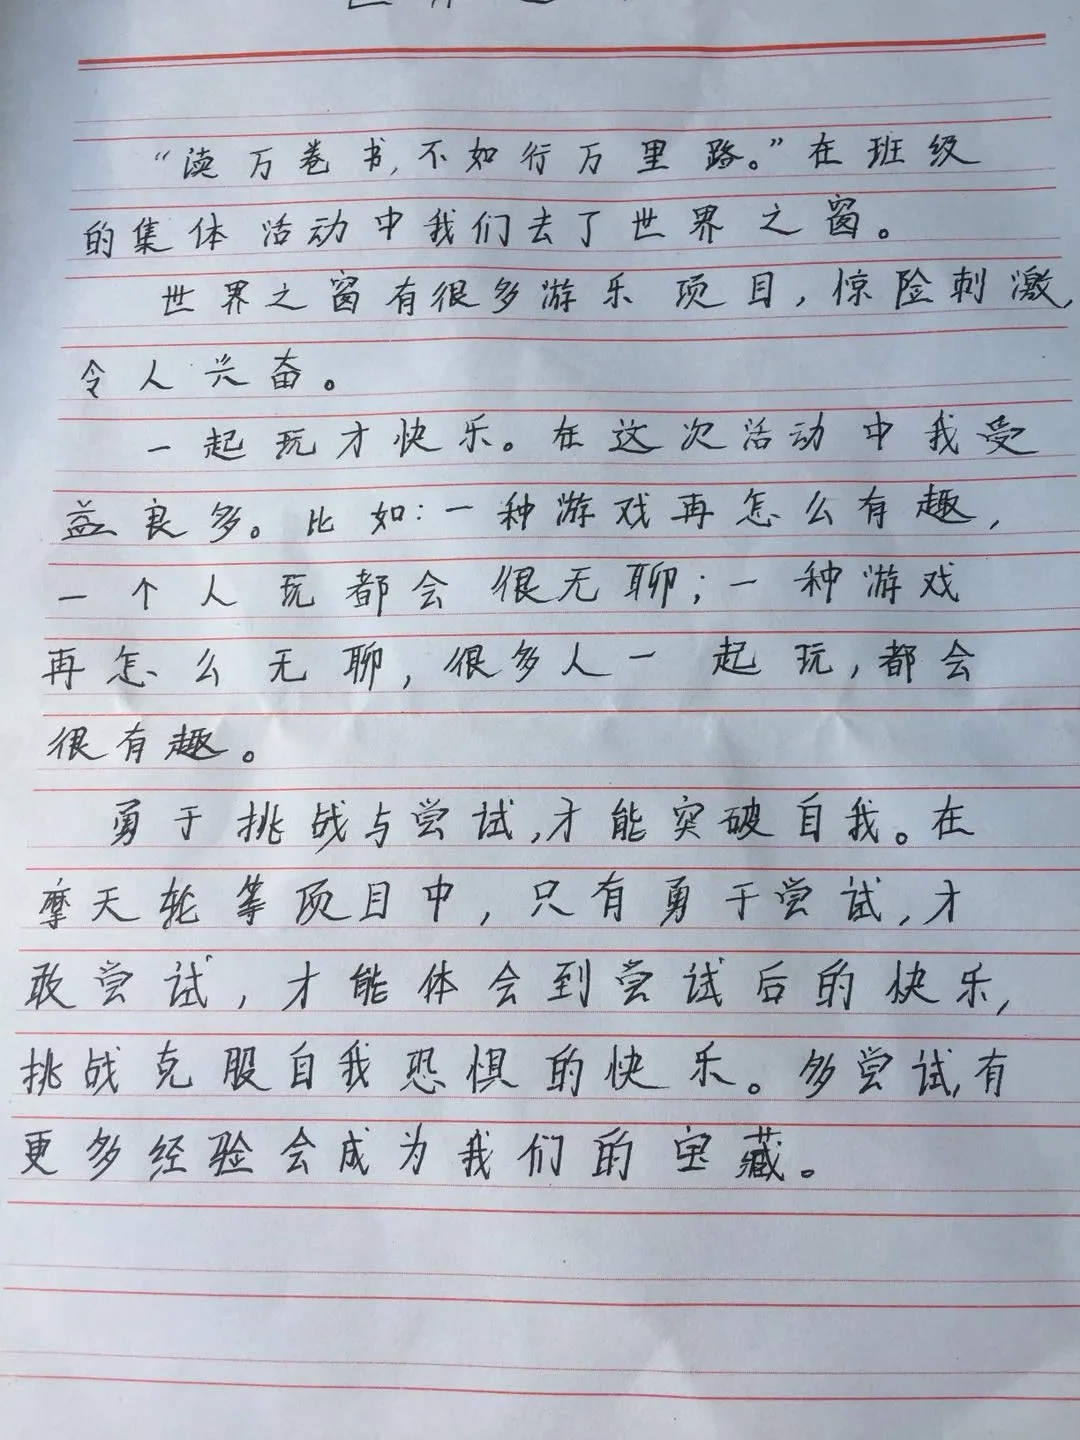 “读万卷书,不如行万里路。”在班级
的集体活动中我们去了世界之窗。
世界之窗有很多游乐项目,惊险刺激,
令人兴奋。
一起玩才快乐。在这次活动中我受
益良多。比如:一种游戏再怎么有趣,
一个人玩都会很无聊;一种游戏
再怎么无聊,很多人一起玩,都会
很有趣。
勇于挑战与尝试,才能突破自我。在
摩天轮等项目中,只有勇于尝试,才
敢尝试,才能体会到尝试后的快乐,
挑战克服自我恐惧的快乐。多尝试,有
更多经验会成为我们的宝藏。